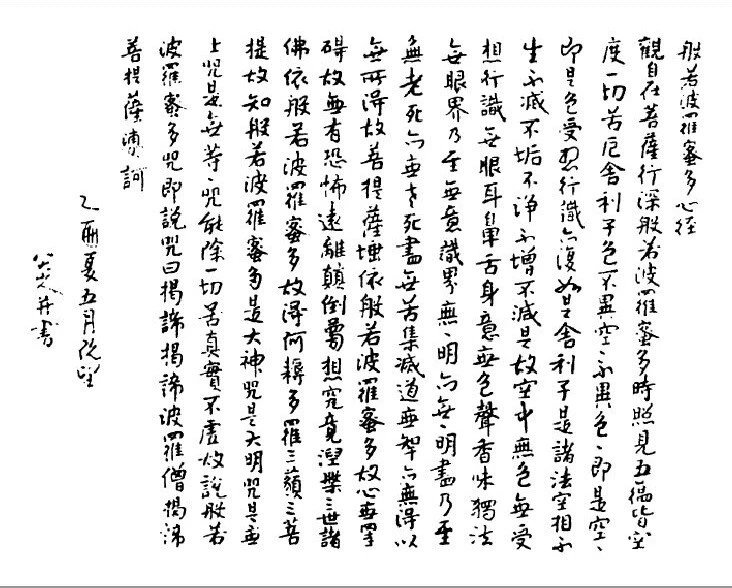 般若波羅蜜多心經
觀自在菩薩行深般若波羅蜜多時照見五蘊皆空
度一切苦厄舍利子色不異空、不異色、即是空、
即是色受想行識亦復如是舍利子是諸法空相不
生不滅不垢不淨不增不減是故空中無色無受
想行識無眼耳鼻舌身意無色聲香味獨法
無眼界乃至無意識界無、明亦無、明盡乃至
無老死亦無老死盡無苦集滅道無智亦無得以
無所得故菩提薩埵依般若波羅蜜多故心無罣
礙故無有恐怖遠離顛倒夢想究竟涅槃三世諸
佛依般若波羅蜜多故得阿耨多羅三藐三菩
提故知般若波羅蜜多是大神咒是大明咒是無
上咒是無等、咒能除一切苦真實不虛故說般若
波羅蜜多咒即說咒曰揭諦揭諦波羅僧揭諦
菩提薩婆訶
乙酉夏五月既望
八大山人書